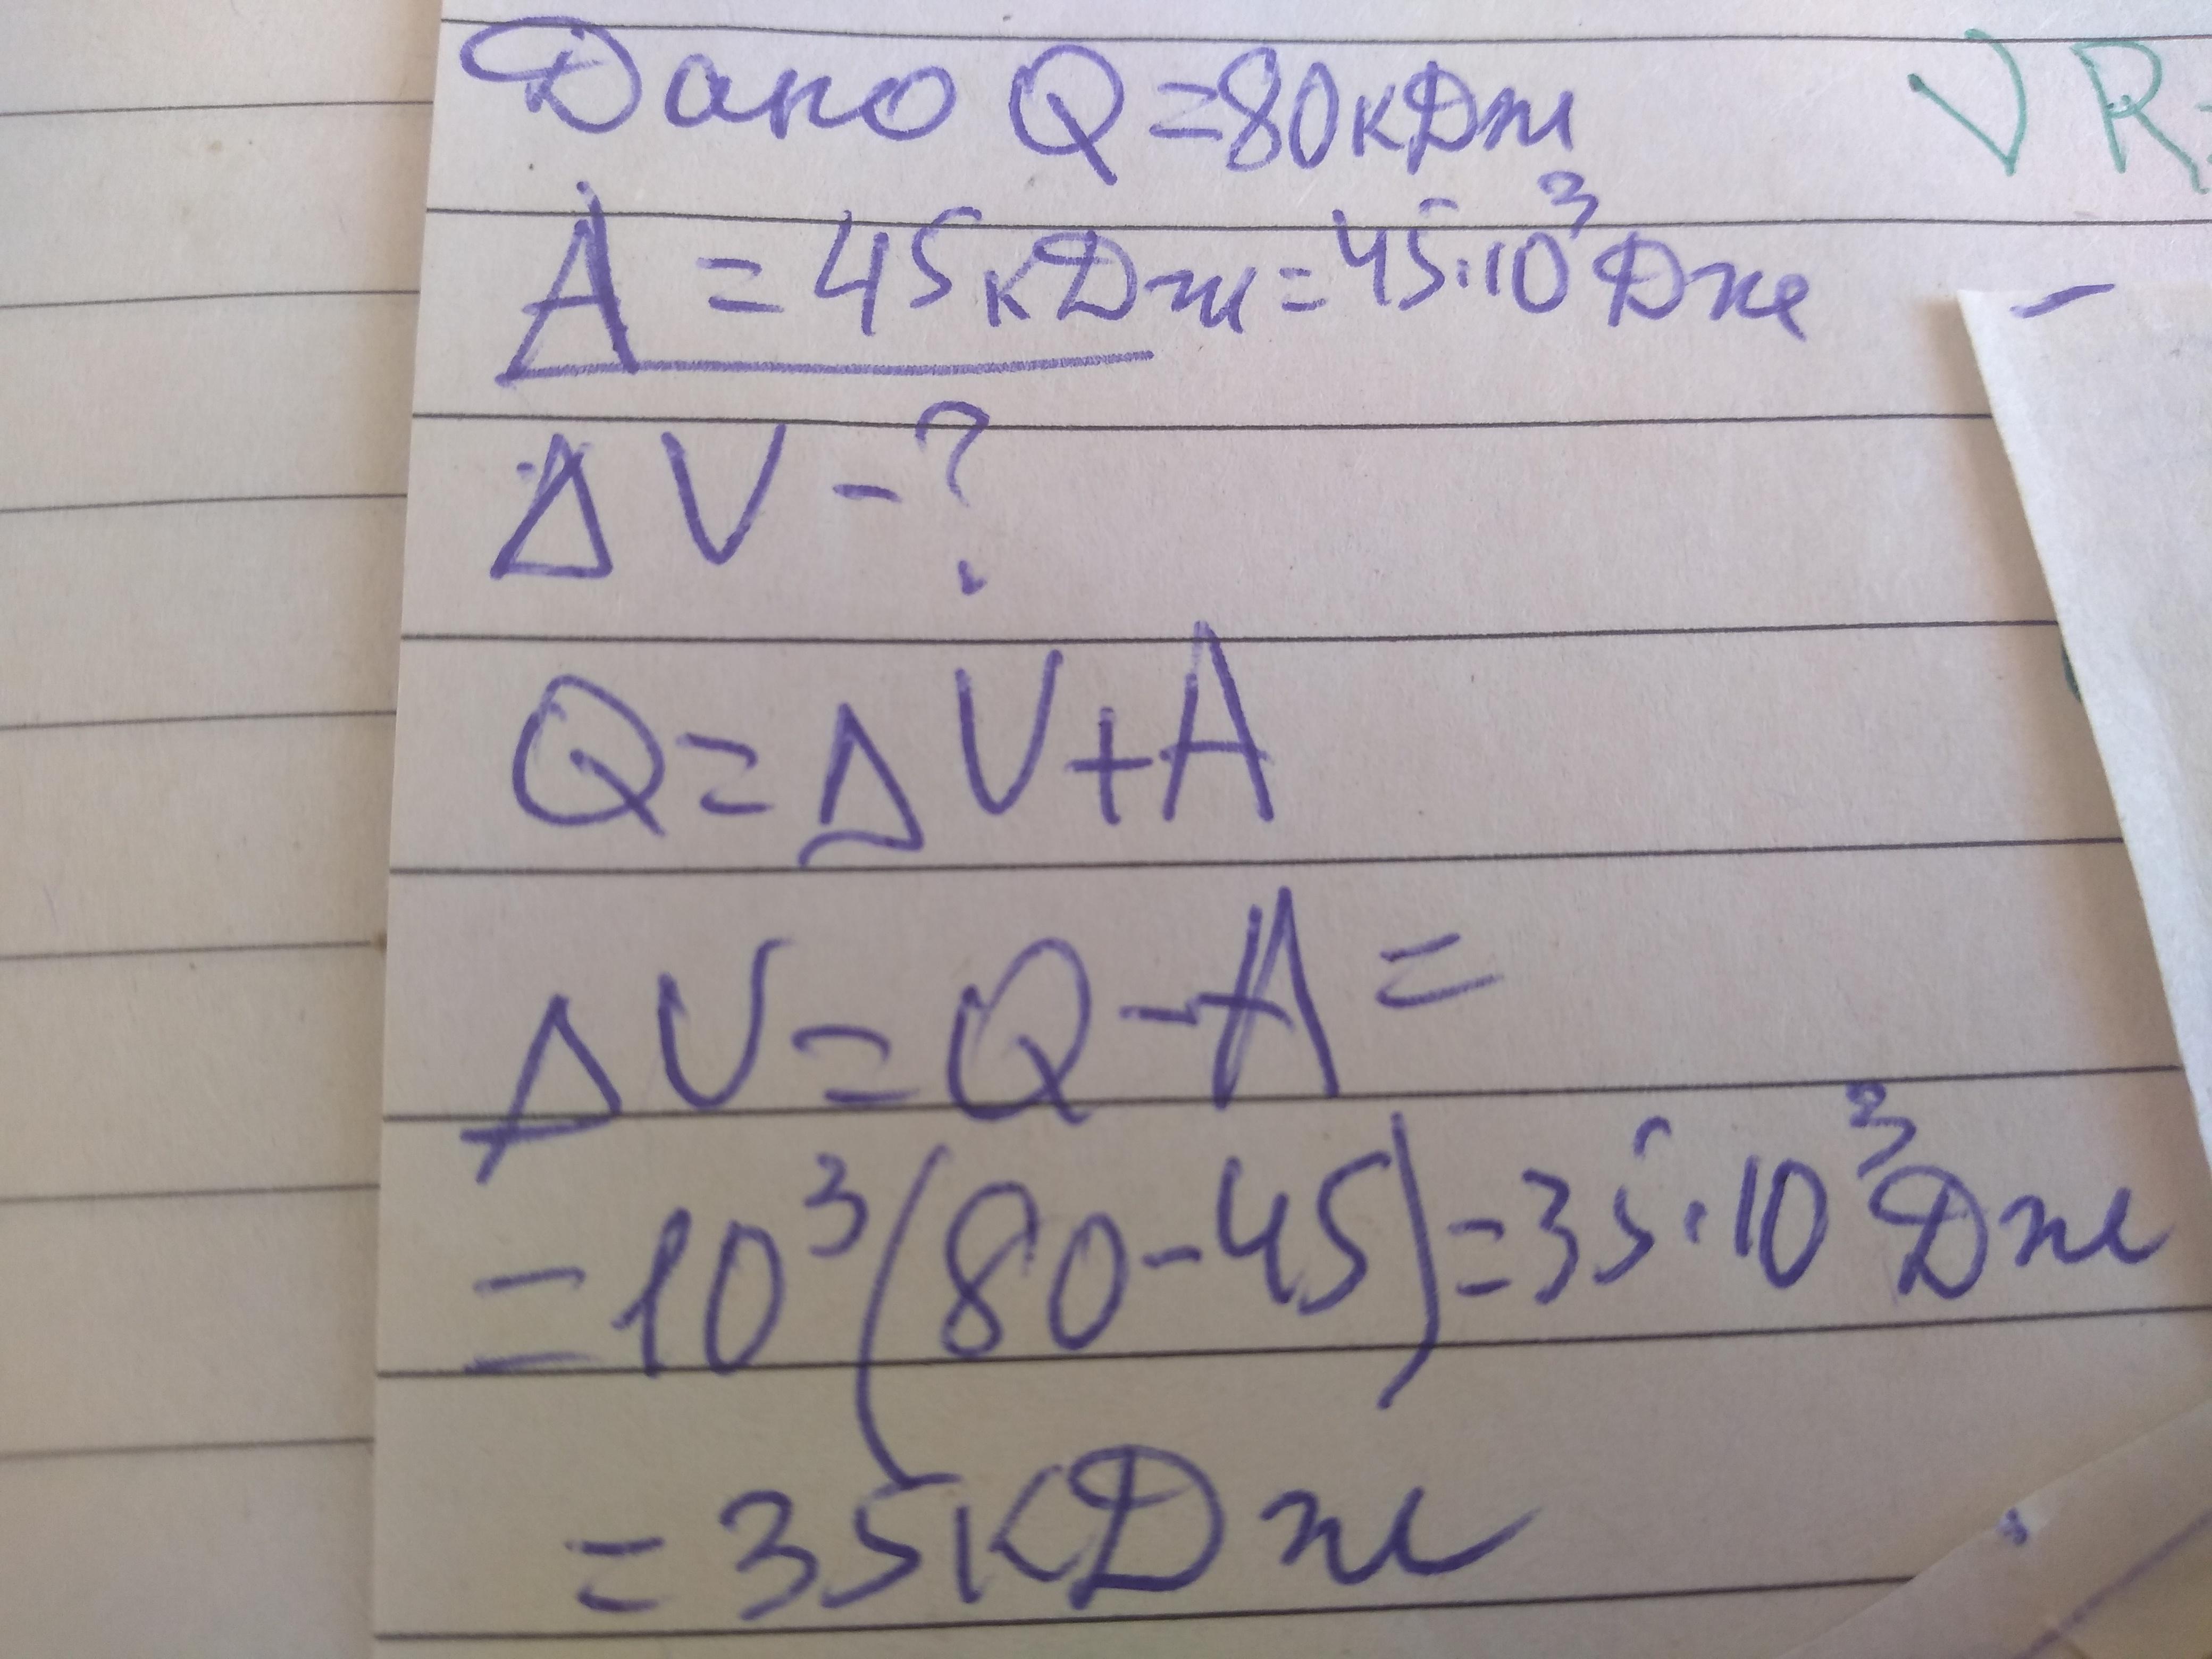 Дано Q = 80 кДж
√ R
A = 45 кДж = 45·10³ Дж
ΔU - ?
Q = ΔU + A
ΔU = Q - A =
= 10³(80 - 45) = 35·10³ Дж
= 35 кДж